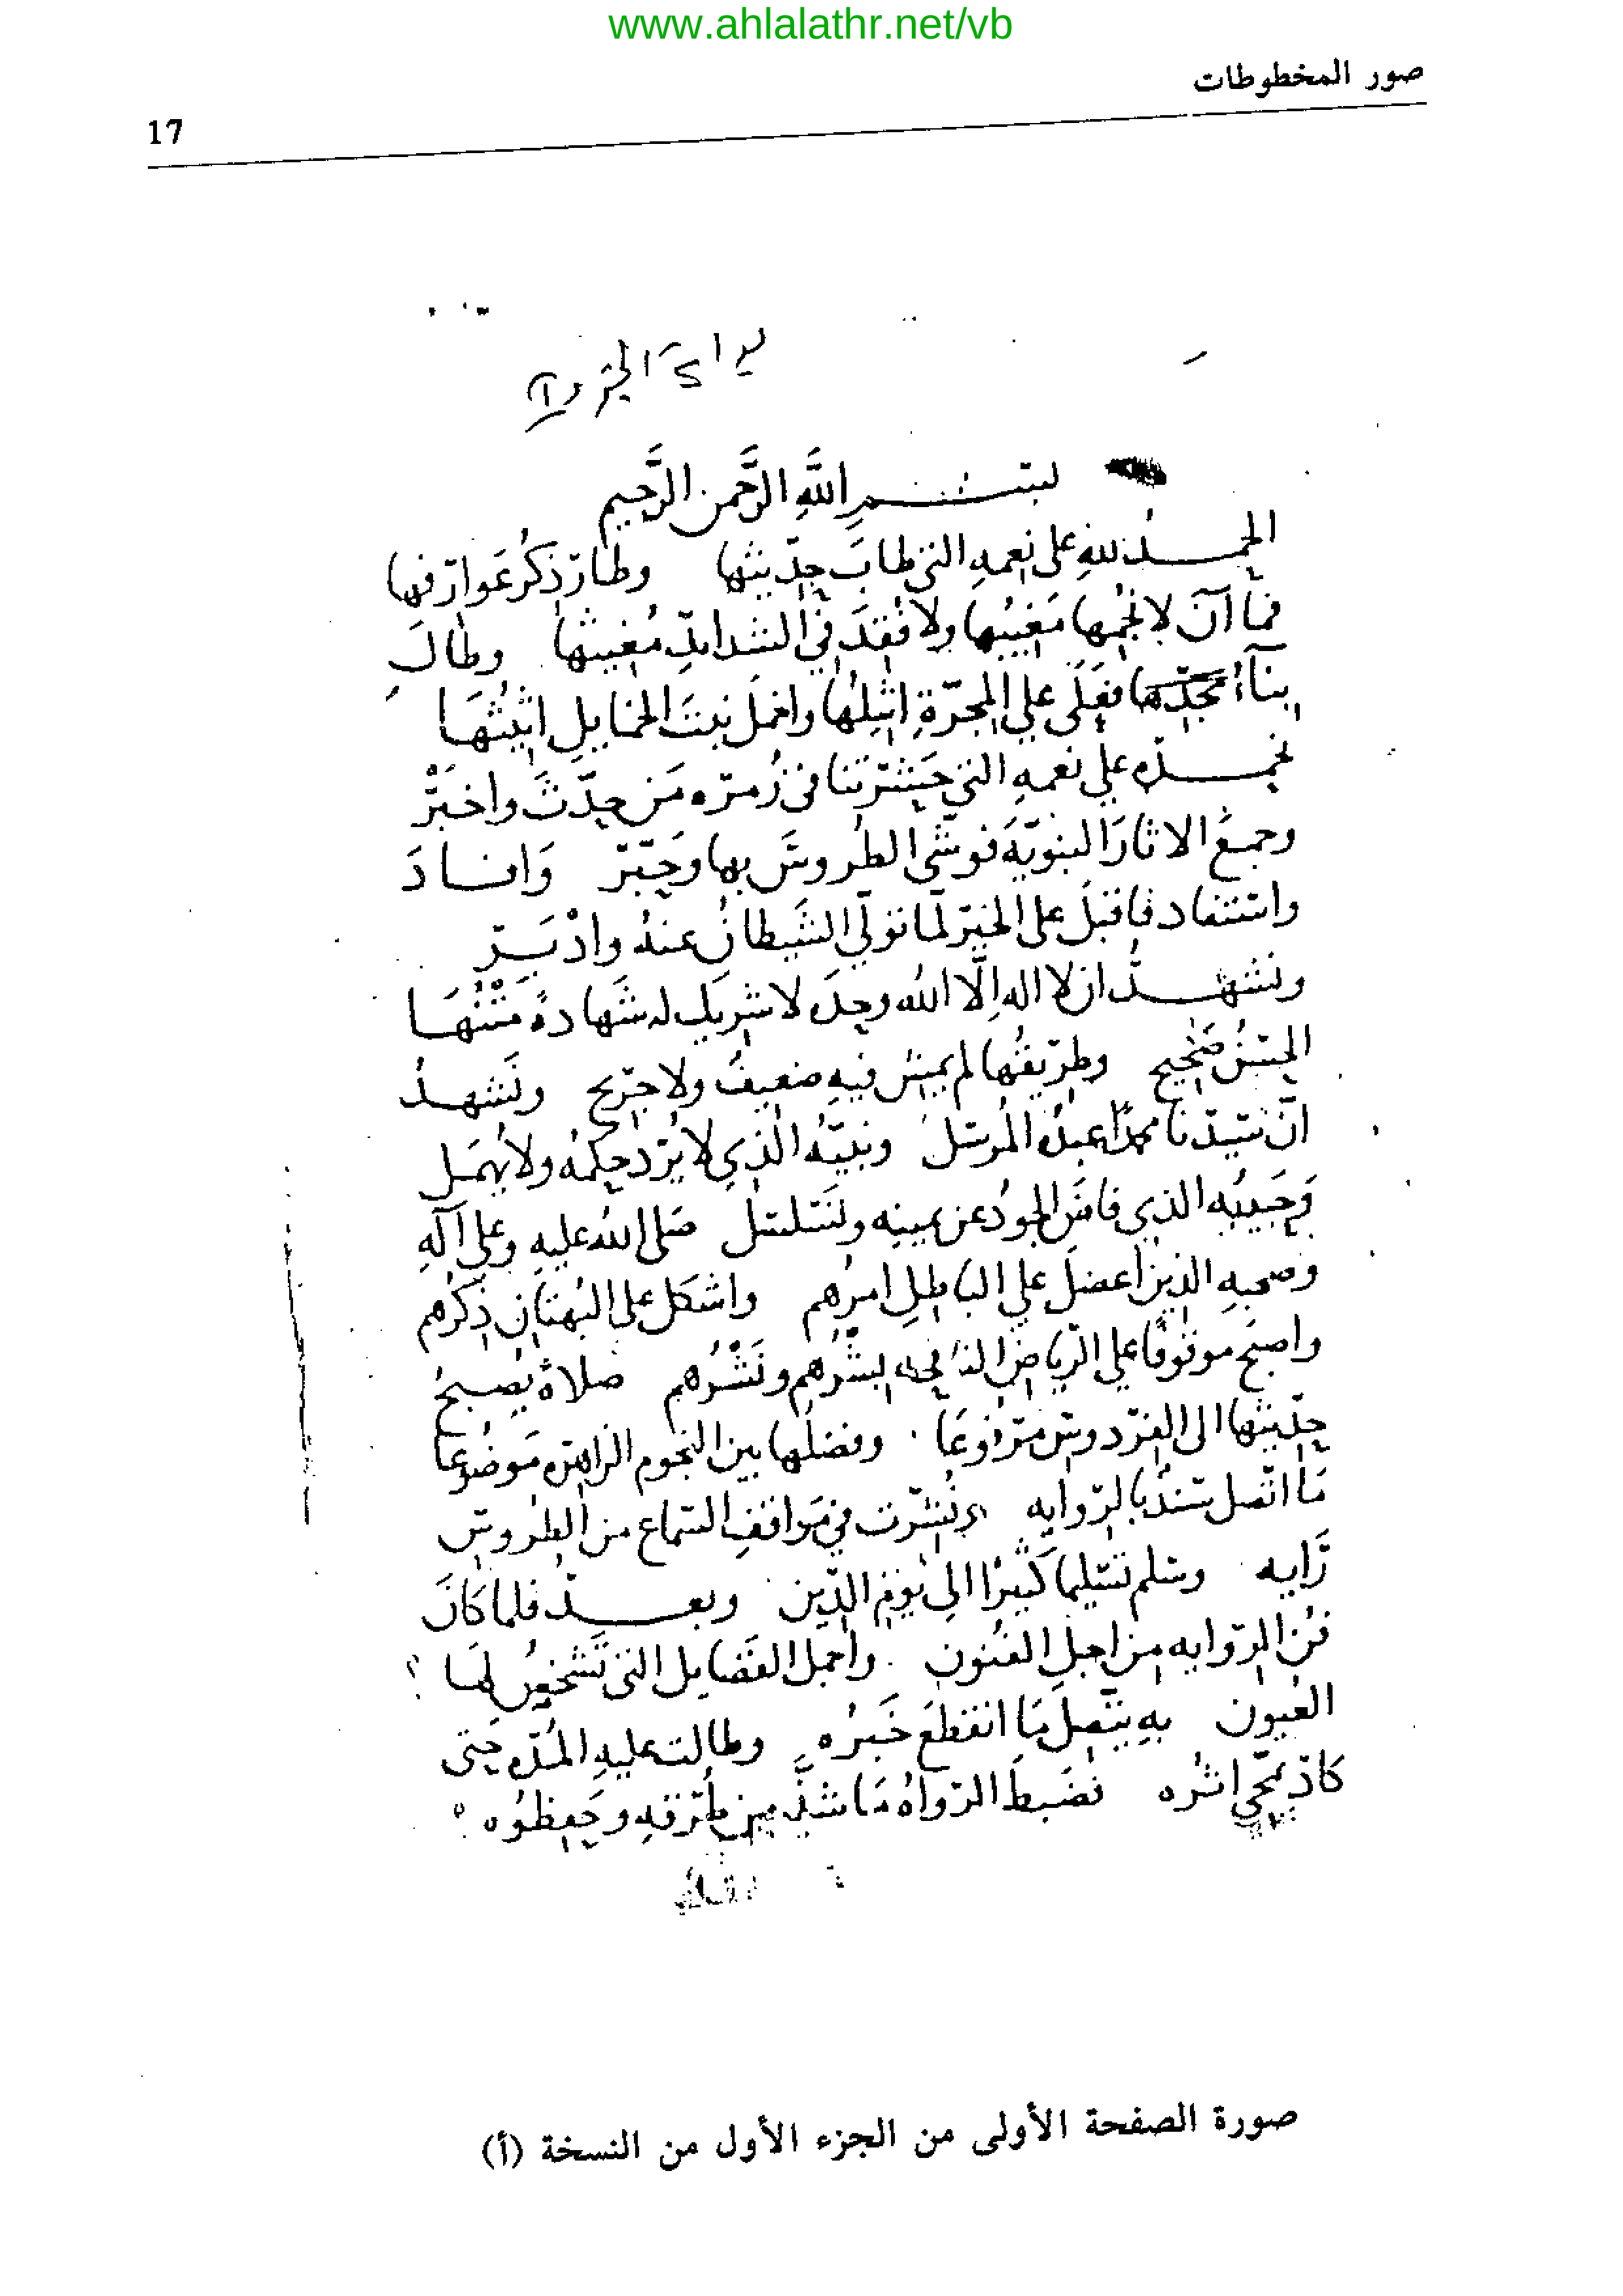 www.ahlalathr.net/vb
صور المخطوطات
17
بداية الجزء (أ)
بسم الله الرحمن الرحيم
الحمد لله على نعمه التي طاب حديثها وطار ذكر عوارفها
فما آن لانجمها مغيبها ولا فقد في الشدايد مغيثها وطال
بناء مجدها فعلى على المجرة اثيلها واخمل نبت الخمايل اثيثها
نحمده على نعمه التي حشرتنا في زمره من حدث واخبر
وجمع الاثار النبويه فوشى الطروس بها وحبر وافاد
واستفاد فاقبل على الخير لما تولى الشيطان عنه وادبر
ونشهد ان لا اله الا الله وحده لا شريك له شهادة متنها
الحسن صحيح وطريقها لم يمش فيه ضعيف ولا جريح ونشهد
ان سيدنا محمدا عبده المرسل ونبيه الذي لا يرد حكمه ولا يهمل
وحبيبه الذي فاض الجود عن يمينه وتسلسل صلى الله عليه وعلى آله
وصحبه الذين اعضل على الباطل امرهم واشكل على البهتان ذكرهم
واصبح موقوفا على الرياض بشرهم ونشرهم صلاة يصبح
حديثها الى الفردوس مرفوعا وفضلها بين النجوم الزاهره موضوعا
ما اتصل سند بالروايه ونشرت في مواقف السماع من الطروس
رايه وسلم تسليما كثيرا الى يوم الدين وبعد فلما كان
فن الروايه من اجل الفنون واجمل الفضايل التي تشخص لها
العيون به يتصل ما انقطع خبره وطالت عليه المده حتى
كاد يمحي اثره فضبط الرواه ما شذ من طرقه وحفظوه
صورة الصفحة الأولى من الجزء الأول من النسخة (أ)